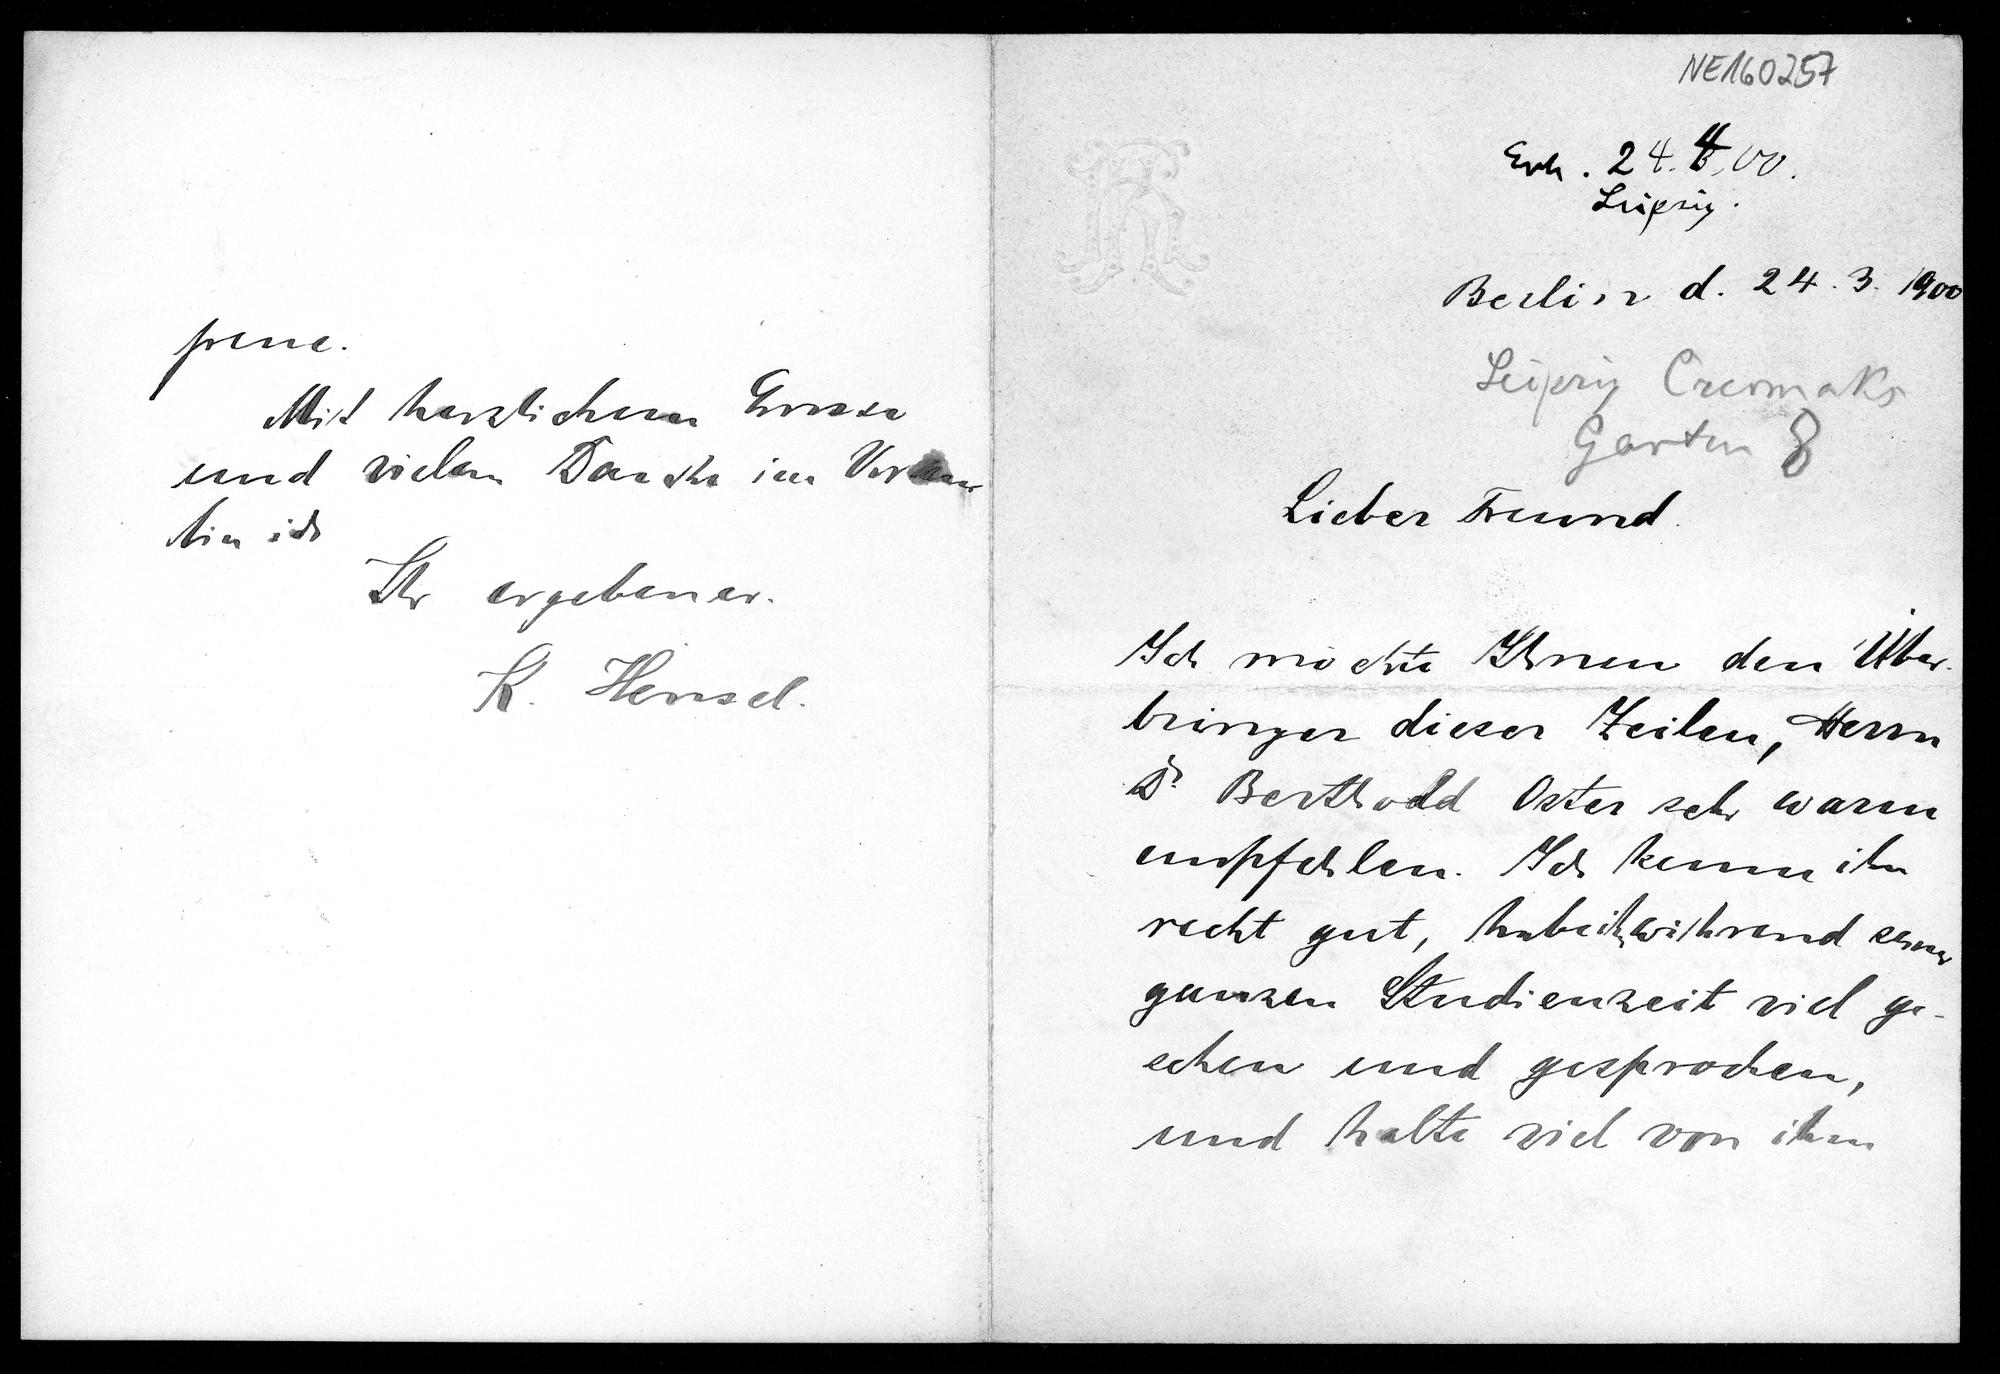 NE160257
Erh. 24.4.00.
Leipzig.
Berlin d. 24.3.1900
Leipzig Czermaks
Garten 8
Lieber Freund.
Ich möchte Ihnen den Über-
bringer dieser Zeilen, Herrn
Dr Berthold Oster sehr warm
empfehlen. Ich kenne ihn
recht gut, habe ihn während seiner
ganzen Studienzeit viel ge-
sehen und gesprochen,
und halte viel von ihm
freue.
Mit herzlichem Grusse
und vielem Danke im Voraus
bin ich
Ihr ergebener.
K. Hensel.